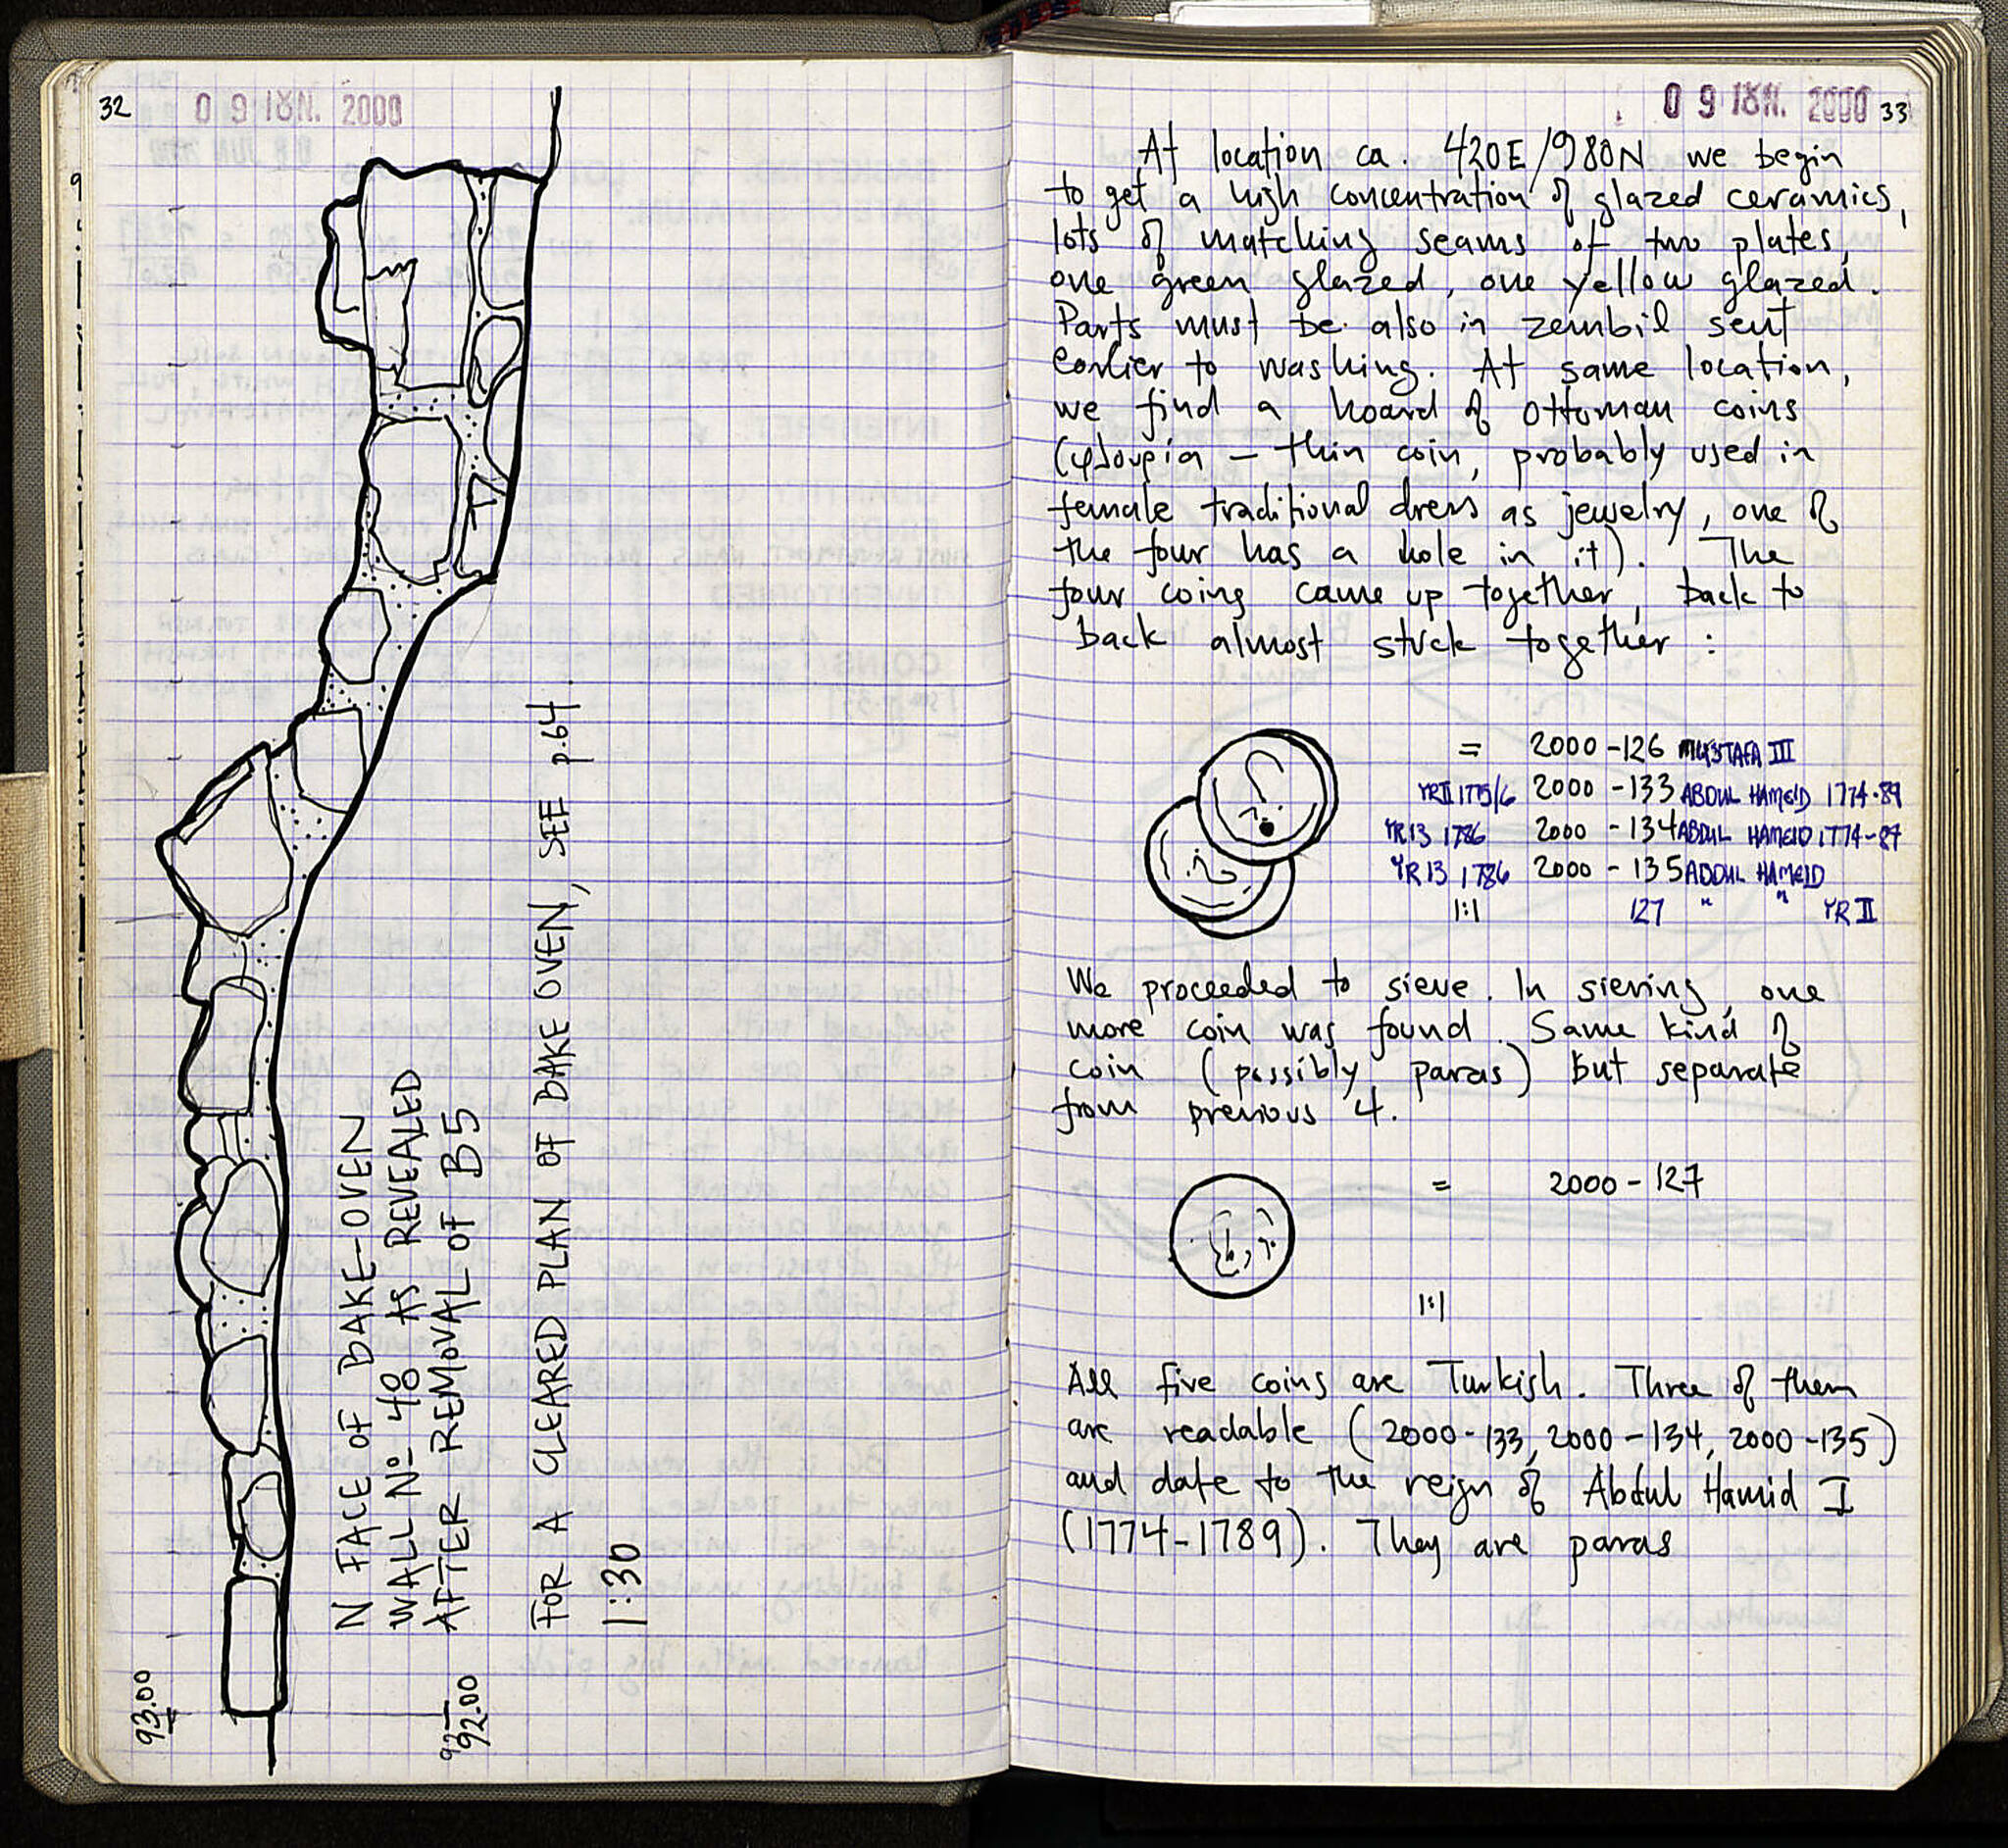 32
0 9 ΙΟΥΝ. 2000
9
N FACE OF BAKE-OVEN
WALL Nº 40 AS REVEALED
AFTER REMOVAL OF B5
FOR A CLEARED PLAN OF BAKE OVEN, SEE p.64
1:30
93.00
92.00
0 9 ΙΟΥΝ. 2000 33
At location ca. 420E/980N we begin
to get a high concentration of glazed ceramics,
lots of matching seams of two plates,
one green glazed, one yellow glazed.
Parts must be also in zembil sent
earlier to washing. At same location,
we find a hoard of Ottoman coins
(φλουρία – thin coin, probably used in
female traditional dress as jewelry, one of
the four has a hole in it). The
four coins came up together, back to
back almost stuck together :
= 2000 - 126 MUSTAFA III
YR II 1775/6 2000 - 133 ABDUL HAMEID 1774-89
YR 13 1786 2000 - 134 ABDUL HAMEID 1774-89
YR 13 1786 2000 - 135 ABDUL HAMEID
1:1 127 " " YR II
We proceeded to sieve. In sieving, one
more coin was found. Same kind of
coin (possibly paras) but separate
from previous 4.
= 2000 - 127
1:1
All five coins are Turkish. Three of them
are readable (2000-133, 2000-134, 2000-135)
and date to the reign of Abdul Hamid I
(1774-1789). They are paras